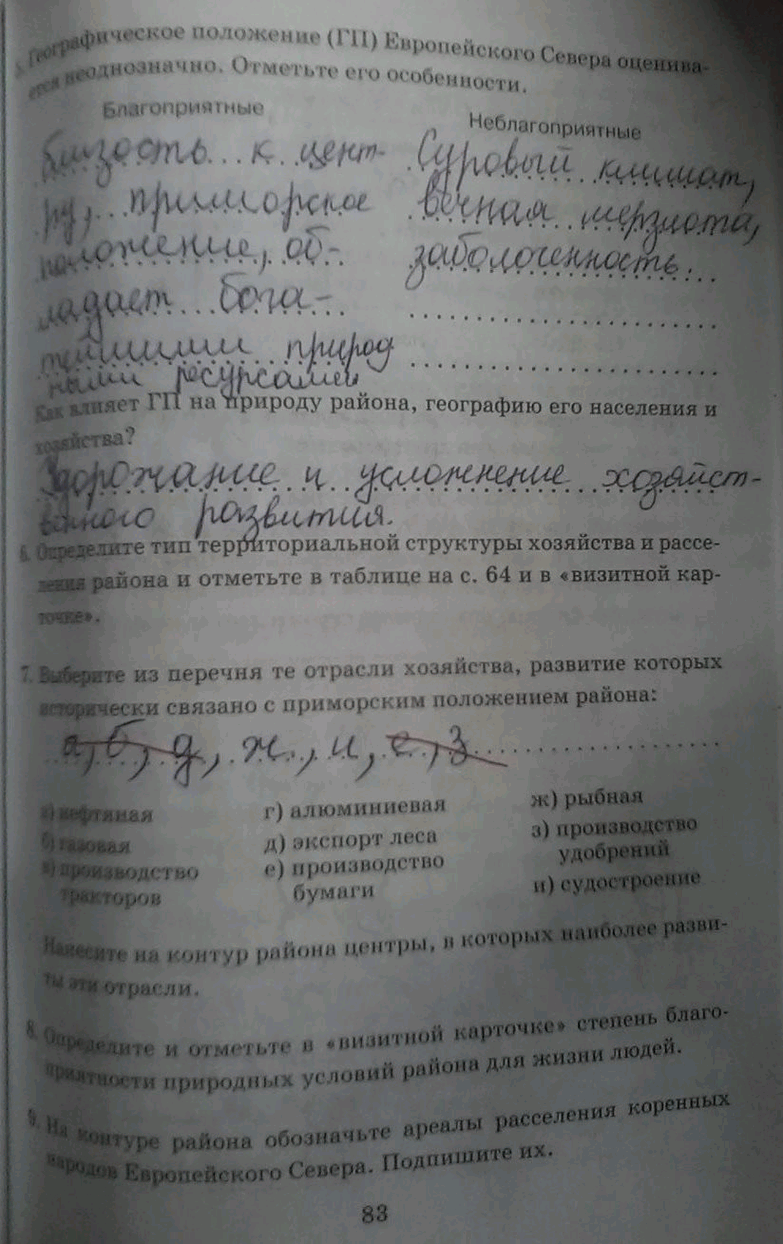 5. Географическое положение (ГП) Европейского Севера оценива-
ется неоднозначно. Отметьте его особенности.
Благоприятные
Неблагоприятные
близость к цент-
ру, приморское
положение, об-
ладает бога-
тейшими природ
ными ресурсами
Суровый климат,
вечная мерзлота,
заболоченность.
Как влияет ГП на природу района, географию его населения и
хозяйства?
Удорожание и усложнение хозяйст-
венного развития.
6. Определите тип территориальной структуры хозяйства и рассе-
ления района и отметьте в таблице на с. 64 и в «визитной кар-
точке».
7. Выберите из перечня те отрасли хозяйства, развитие которых
исторически связано с приморским положением района:
а, б, д, ж, и, е, з
а) нефтяная
б) газовая
в) производство
тракторов
г) алюминиевая
д) экспорт леса
е) производство
бумаги
ж) рыбная
з) производство
удобрений
и) судостроение
Нанесите на контур района центры, в которых наиболее разви-
ты эти отрасли.
8. Определите и отметьте в «визитной карточке» степень благо-
приятности природных условий района для жизни людей.
9. На контуре района обозначьте ареалы расселения коренных
народов Европейского Севера. Подпишите их.
83